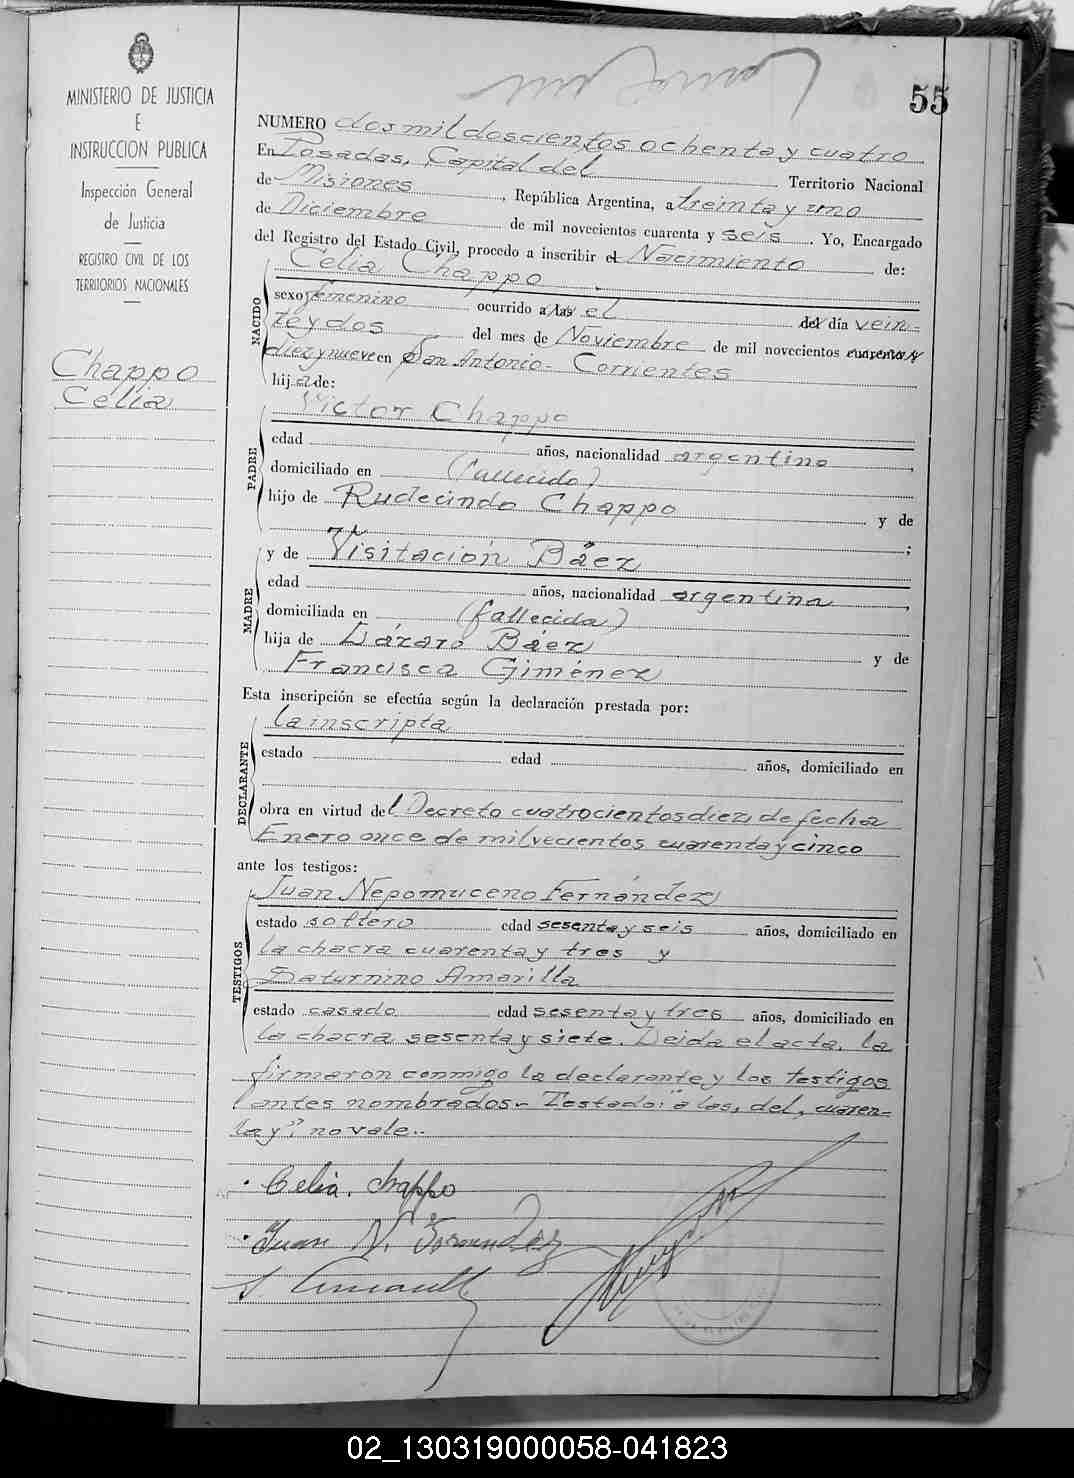 55
MINISTERIO DE JUSTICIA
E
INSTRUCCION PUBLICA
Inspección General
de Justicia
REGISTRO CIVIL DE LOS
TERRITORIOS NACIONALES
Chappo
Celia
NUMERO dos mil doscientos ochenta y cuatro
En Posadas, Capital del Territorio Nacional
de Misiones, República Argentina, a treinta y uno
de Diciembre de mil novecientos cuarenta y seis. Yo, Encargado
del Registro del Estado Civil, procedo a inscribir el Nacimiento de:
NACIDO
Celia Chappo
sexo femenino ocurrido a las el del día vein-
te y dos del mes de Noviembre de mil novecientos cuarenta y
diez y nueve en San Antonio - Corrientes
hija de:
PADRE
Victor Chappo
edad años, nacionalidad argentino,
domiciliado en (fallecido)
hijo de Rudecindo Chappo y de
;
MADRE
y de Visitación Báez
edad años, nacionalidad argentina,
domiciliada en (fallecida)
hija de Lázaro Báez y de
Francisca Giménez
Esta inscripción se efectúa según la declaración prestada por:
DECLARANTE
la inscripta
estado edad años, domiciliado en
obra en virtud del Decreto cuatrocientos diez, de fecha
Enero once de mil vecientos cuarenta y cinco
ante los testigos:
TESTIGOS
Juan Nepomuceno Fernández
estado soltero edad sesenta y seis años, domiciliado en
la chacra cuarenta y tres y
Saturnino Amarilla
estado casado edad sesenta y tres años, domiciliado en
la chacra sesenta y siete. Leida el acta, la
firmaron conmigo la declarante y los testigos
antes nombrados.- Testado: "a las, del, cuaren-
ta y", no vale..
Celia. chappo
Juan N. Fernandez
02_130319000058-041823